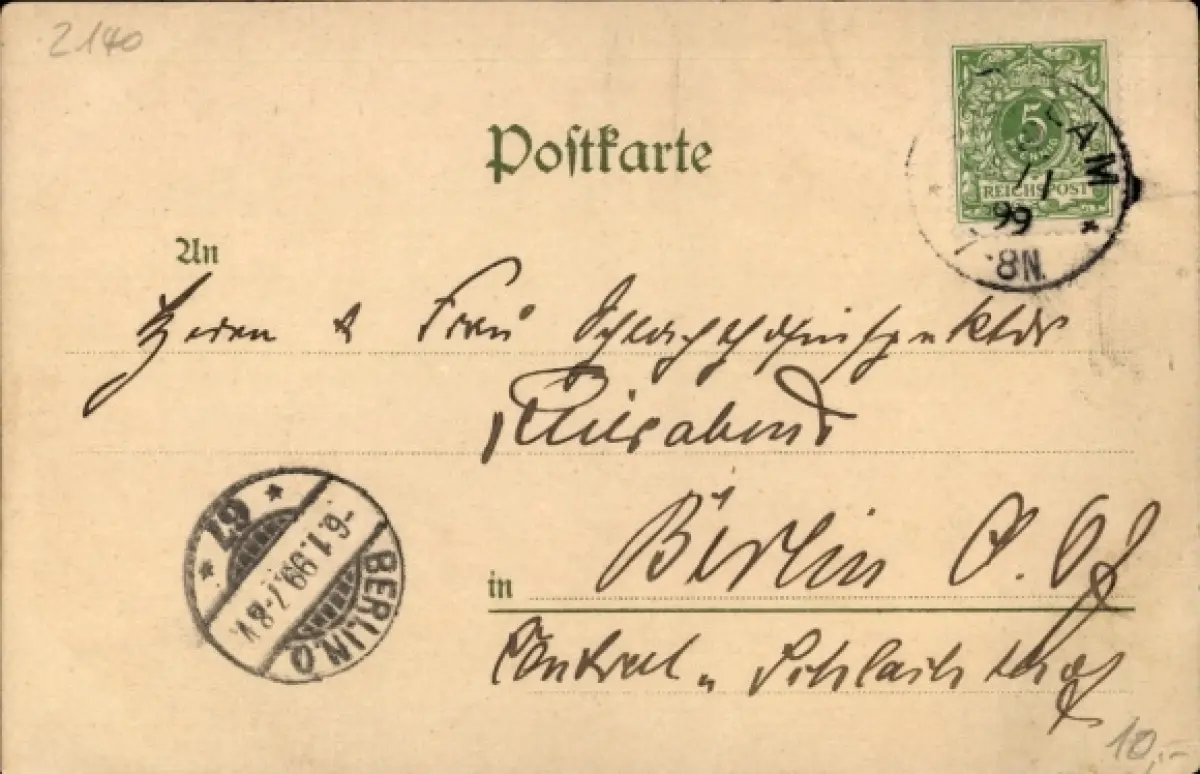 2140
Postkarte
5
REICHSPOST
AM
11
99
7-8N.
An
Herrn & Frau Schlachthofinspektor
in Berlin O. 67
Central-Schlachthof
67
BERLIN.O
-6.1.99.7-8V.
10,-